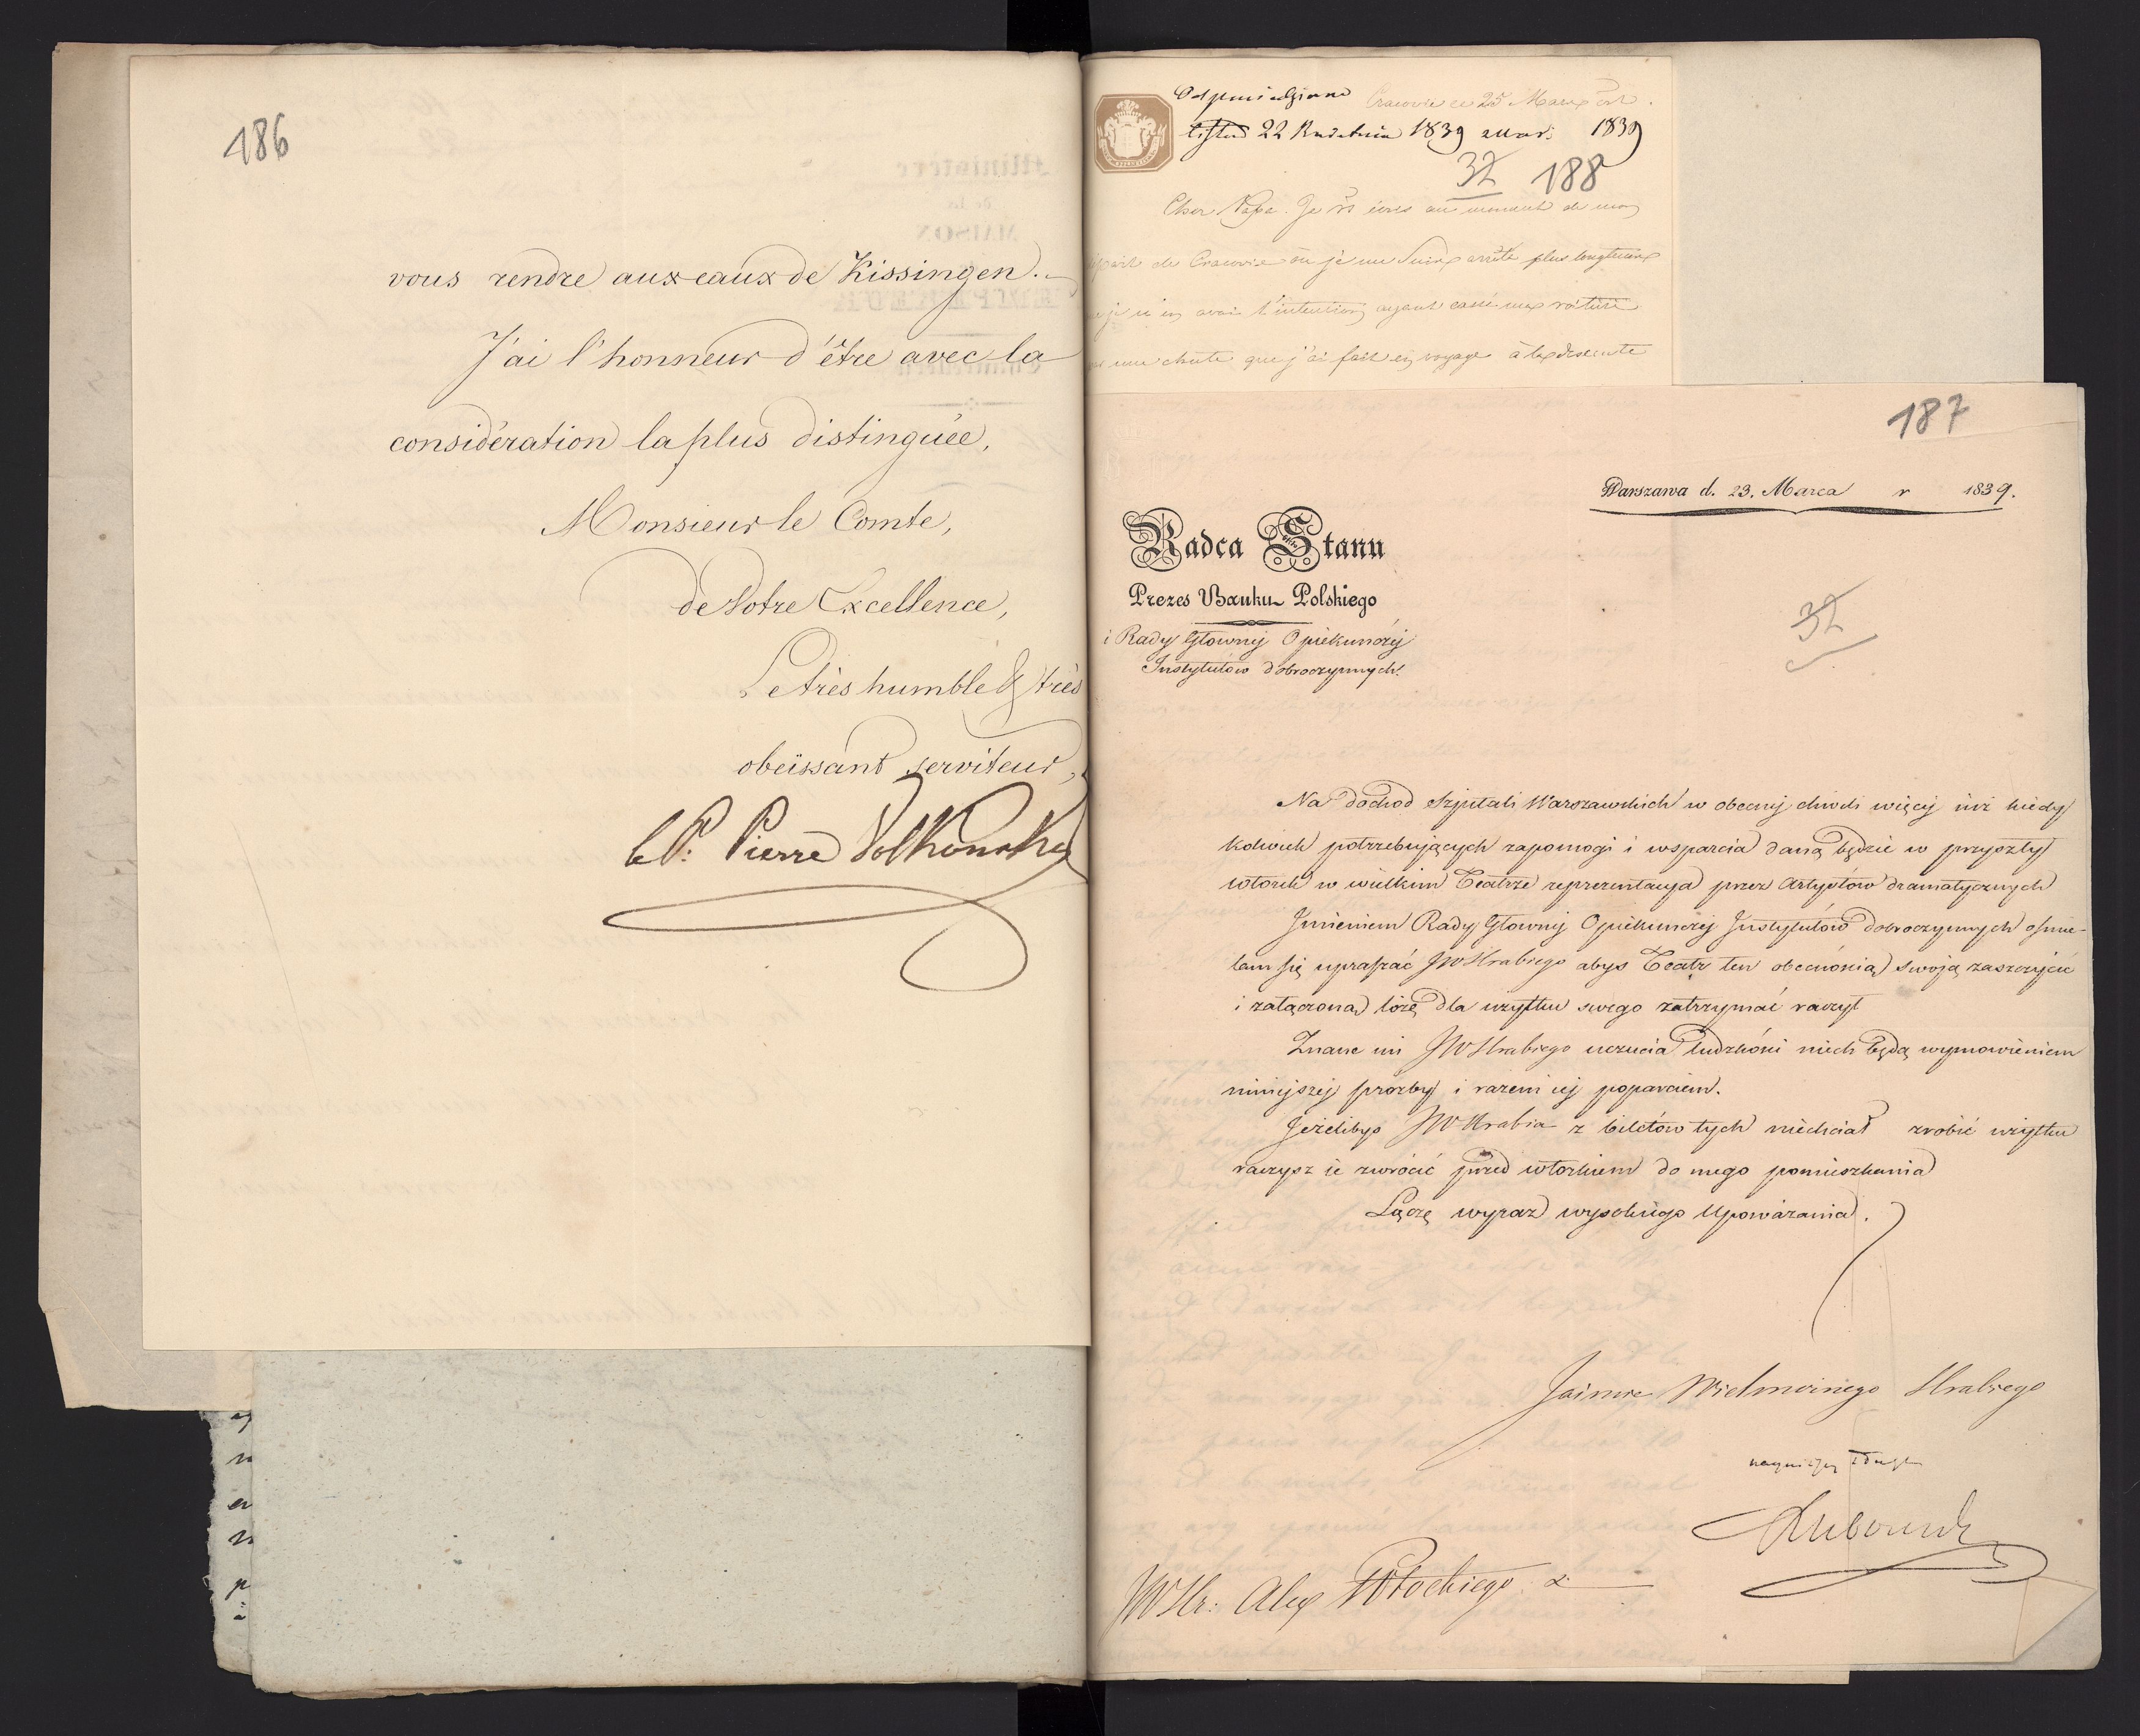 186
vous rendre aux eaux de Kissingen.
J'ai l'honneur d'être avec la
considération la plus distinguée,
Monsieur le Comte,
de Votre Excellence,
Le très humble & très
obéissant serviteur,
le P: Pierre Volkonsky
Odpowiedziano Cracovie ce 25 Mars
22 Kwietnia 1839 1839
32 188
Cher Papa. Je vs écris au moment de mon
départ de Cracovie où je me suis arrêté plus longtems
je n'en avai l'intention ayant cassé ma voiture
une chute que j'ai fait en voyage à la descente
187
Warszawa d. 23. Marca r 1839.
Radca Stanu
Prezes Banku Polskiego
i Rady Głownej Opiekunczej
Instytutów dobroczynnych.
32
Na dochod Szpitali Warszawskich w obecnej chwili więcej niż kiedy
kolwiek potrzebujących zapomogi i wsparcia daną będzie w przyszły
wtorek w wielkim Teatrze reprezentacya przez Artystów dramatycznych
Imieniem Rady Głownej Opiekunczej Instytutów dobroczynnych ośmie-
lam się upraszać JW Hrabiego abyś Teatr ten obecnością swoją zaszczycić
i załączoną lożę dla użytku swego zatrzymać raczył
Znane mi JW Hrabiego uczucia ludzkości niech będą wymowieniem
niniejszej prozby i razem iej poparciem.
Jeżelibyś JW Hrabia z biletów tych niechciał zrobić użytku
raczysz ie zwrócić przed wtorkiem do mego pomieszkania
Łączę wyraz wysokiego Upoważania.
Jaśnie Wielmożnego Hrabiego
nayniższy sługa
Lubowidz
JW Hr: Alex Potockiego